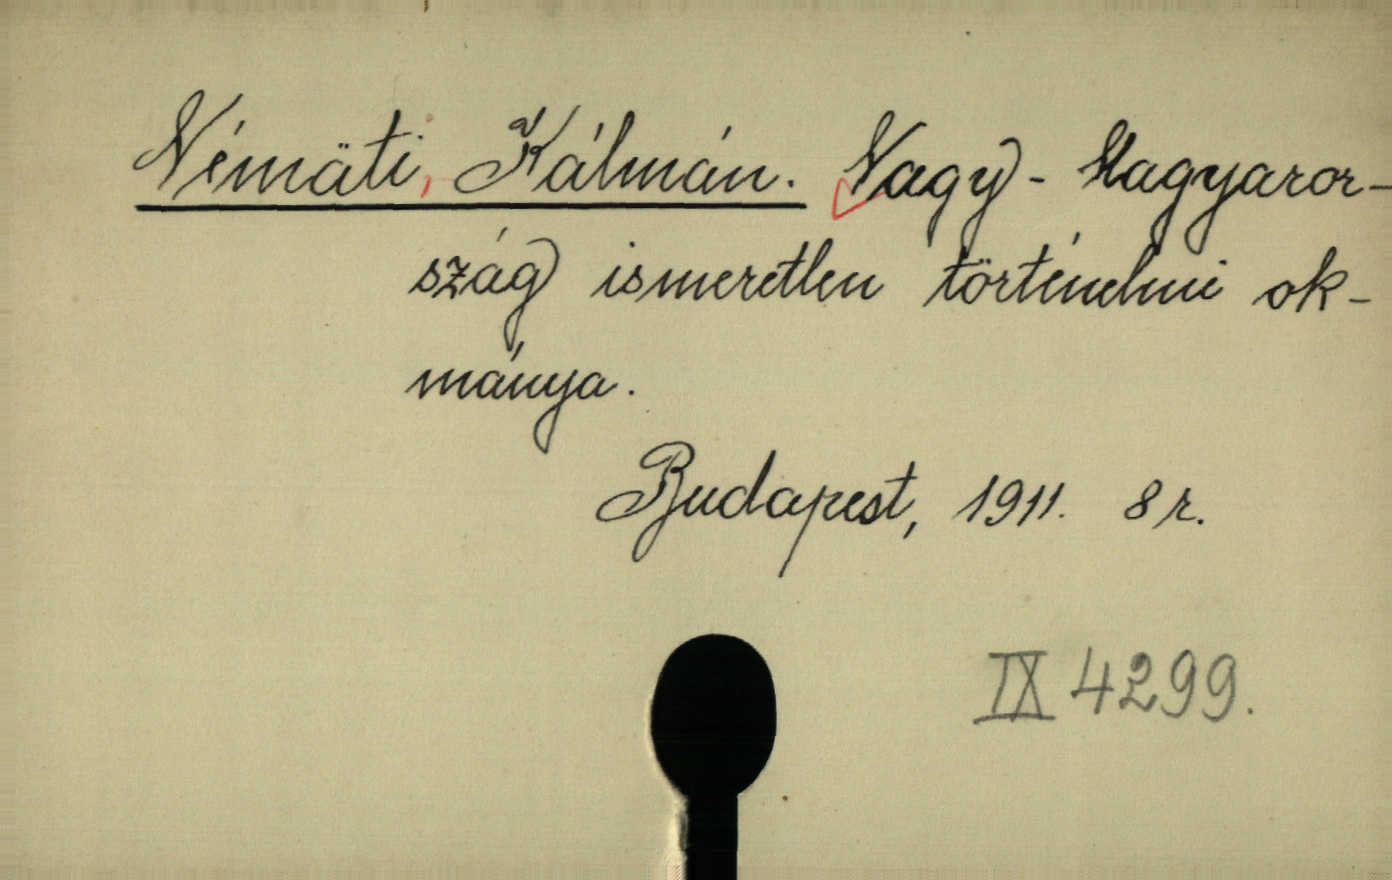 Némäti, Kálmán. Nagy-Magyaror-
szág ismeretlen történelmi ok-
mánya.
Budapest, 1911. 8 r.
IX 4299.